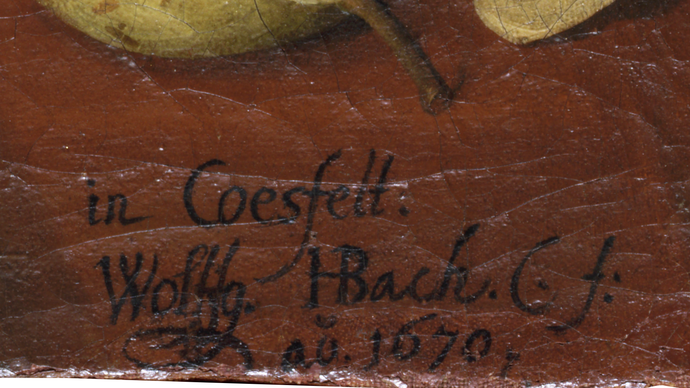 in Coesfelt:
Wolffg. HBach. C. f:
aō. 1670,